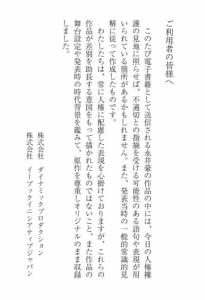 ご利用者の皆様へ
このたび電子書籍として送信される永井豪の作品の中には、今日の人権擁
護の見地に照らせば、不適切との指摘を受ける可能性のある語句や表現が用
いられている箇所があるかもしれません。また、発表当時の一般的常識的見
解に従って作成したものです。
わたしたちは、常に人権に配慮した表現を心掛けておりますが、これらの
作品が差別を助長する意図をもって描かれたものではないこと、また作品の
舞台設定や発表時の時代背景を鑑みて、原作を尊重しオリジナルのまま収録
しました。
株式会社 ダイナミックプロダクション
株式会社 イーブックイニシアティブジャパン